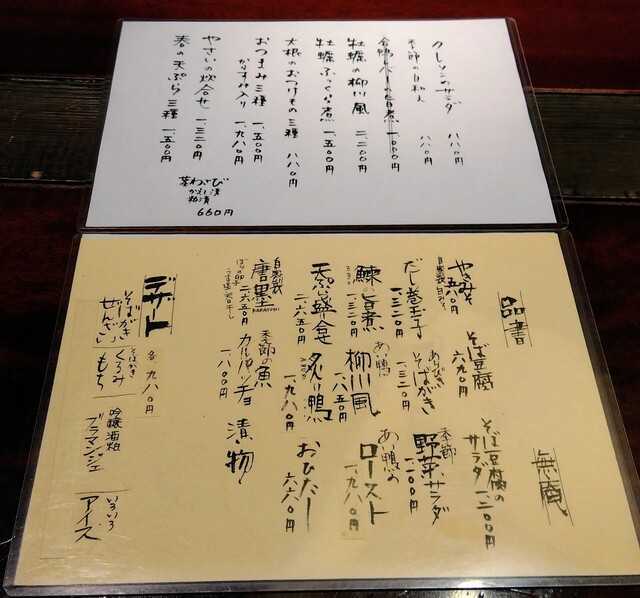 クレソンのサラダ 八八〇円
季節の白和え 八八〇円
合鴨レバーの旨煮 一、〇〇〇円
牡蠣の柳川風 二、二〇〇円
牡蠣ふっくら煮 一、五〇〇円
大根のおつけもの三種 八八〇円
おつまみ三種 一、五〇〇円
からすみ入り 一、九八〇円
やさいの炊合せ 一、三二〇円
春の天ぷら三種 一、五〇〇円
茎わさび
粕漬
660円
品書
無風
やきみそ 五八〇円
自家製 白みそ
そば豆腐 六九〇円
そば豆腐の
サラダ 一、二〇〇円
だし巻玉子 一、三二〇円
そばがき 一、三二〇円
季節
野菜サラダ 一、一〇〇円
鰊の旨煮 一、三二〇円
あい鴨
柳川風 一、八五〇円
あい鴨の
ロースト 一、九八〇円
天ぷら盛合せ 二、六五〇円
炙り鴨 一、九八〇円
おひたし 六六〇円
自家製
唐墨 KARASUMI 二、六五〇円
季節の魚
カルパッチョ 一、八〇〇円
漬物
デザート 各九八〇円
そばがき
ぜんざい
そばがき
くるみ
もち
吟醸酒粕
ブラマンジェ
いろいろ
アイス